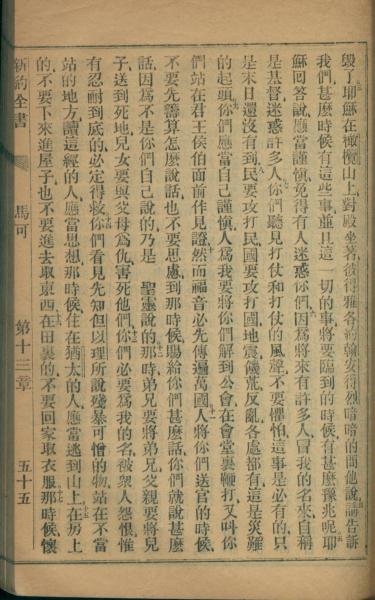 毀了耶穌在橄欖山上對殿坐著彼得雅各約翰安得烈暗暗的問他說請告訴
我們甚麼時候有這些事並且這一切的事將要臨到的時候有甚麼豫兆呢耶
穌回答說應當謹慎免得有人迷惑你們因爲將來有許多人冒我的名來自稱
是基督迷惑許多人你們聽見打仗和打仗的風聲不要懼怕這事是必有的只
是末日還沒有到民要攻打民國要攻打國地震饑荒反亂各處都有這是災難
的起頭你們應當自己謹愼人爲我要將你們解到公會在會堂裏鞭打又叫你
們站在君王侯伯面前作見證然而福音必先傳遍萬國人將你們送官的時候
不要先籌算怎麼說話也不要思慮到那時候賜給你們甚麼話你們就說甚麼
話因爲不是你們自己說的乃是 聖靈說的那時弟兄要將弟兄父親要將兒
子送到死地兒女要與父母爲仇害死他們你們必要爲我的名被衆人怨恨惟
有忍耐到底的必定得救你們看見先知但以理所說殘暴可憎的物站在不當
站的地方讀這經的人應當思想那時候住在猶太的人應當逃到山上在房上
的不要下來進屋子也不要進去取東西在田裏的不要回家取衣服那時候懷
新約全書 馬可 第十三章 五十五